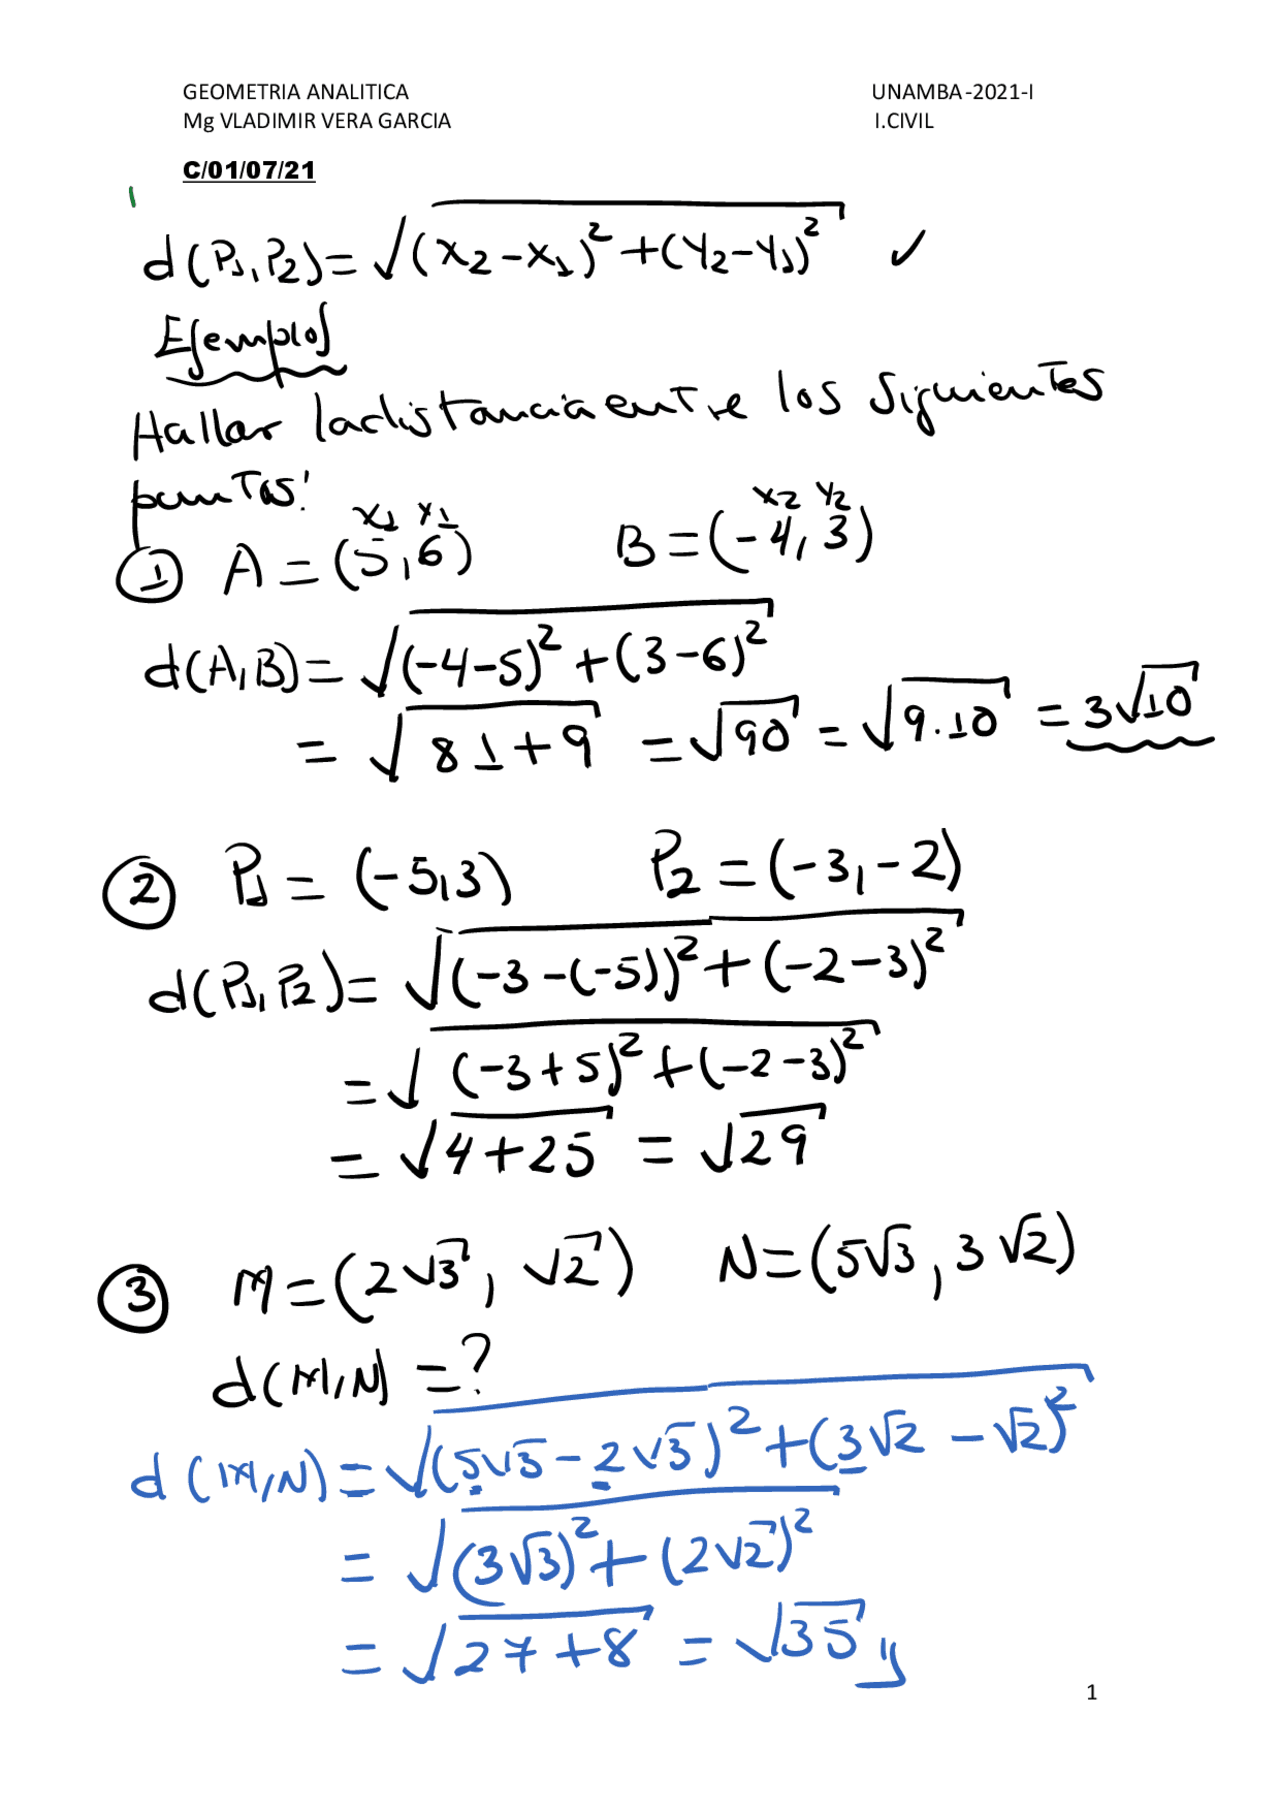 GEOMETRIA ANALITICA UNAMBA -2021-I
Mg VLADIMIR VERA GARCIA I.CIVIL
C/01/07/21
d(P₁,P₂)=√((x₂-x₁)²+(y₂-y₁)²) ✓
Ejemplos
Hallar la distancia entre los siguientes
puntos:
x₁ y₁ x₂ y₂
① A=(5,6) B=(-4,3)
d(A,B)=√((-4-5)²+(3-6)²)
=√(81+9) =√90 =√(9.10) =3√10
② P₁=(-5,3) P₂=(-3,-2)
d(P₁,P₂)=√((-3-(-5))²+(-2-3)²)
=√((-3+5)²+(-2-3)²)
=√(4+25) =√29
③ M=(2√3, √2) N=(5√3, 3√2)
d(M,N)=?
d(M,N)=√((5√3-2√3)²+(3√2-√2)²)
=√((3√3)²+(2√2)²)
=√(27+8) =√35
1